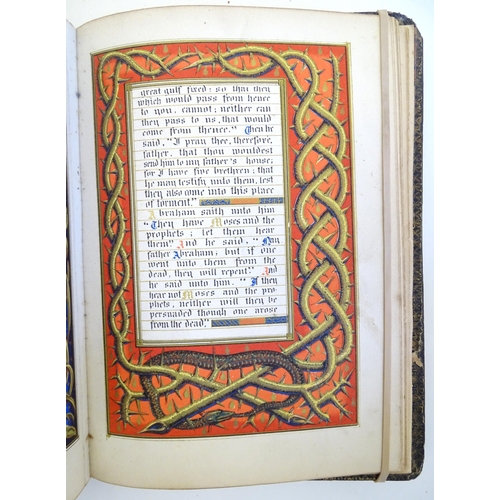 great gulf fixed: so that they
which would pass from hence
to you, cannot; neither can
they pass to us, that would
come from thence." Then he
said, "I pray thee, therefore,
father, that thou wouldest
send him to my father's house;
for I have five brethren; that
he may testify unto them, lest
they also come into this place
of torment."
Abraham saith unto him
"They have Moses and the
prophets; let them hear
them." And he said, "Nay,
father Abraham; but if one
went unto them from the
dead, they will repent." And
he said unto him. "If they
hear not Moses and the pro-
phets, neither will they be
persuaded though one arose
from the dead."